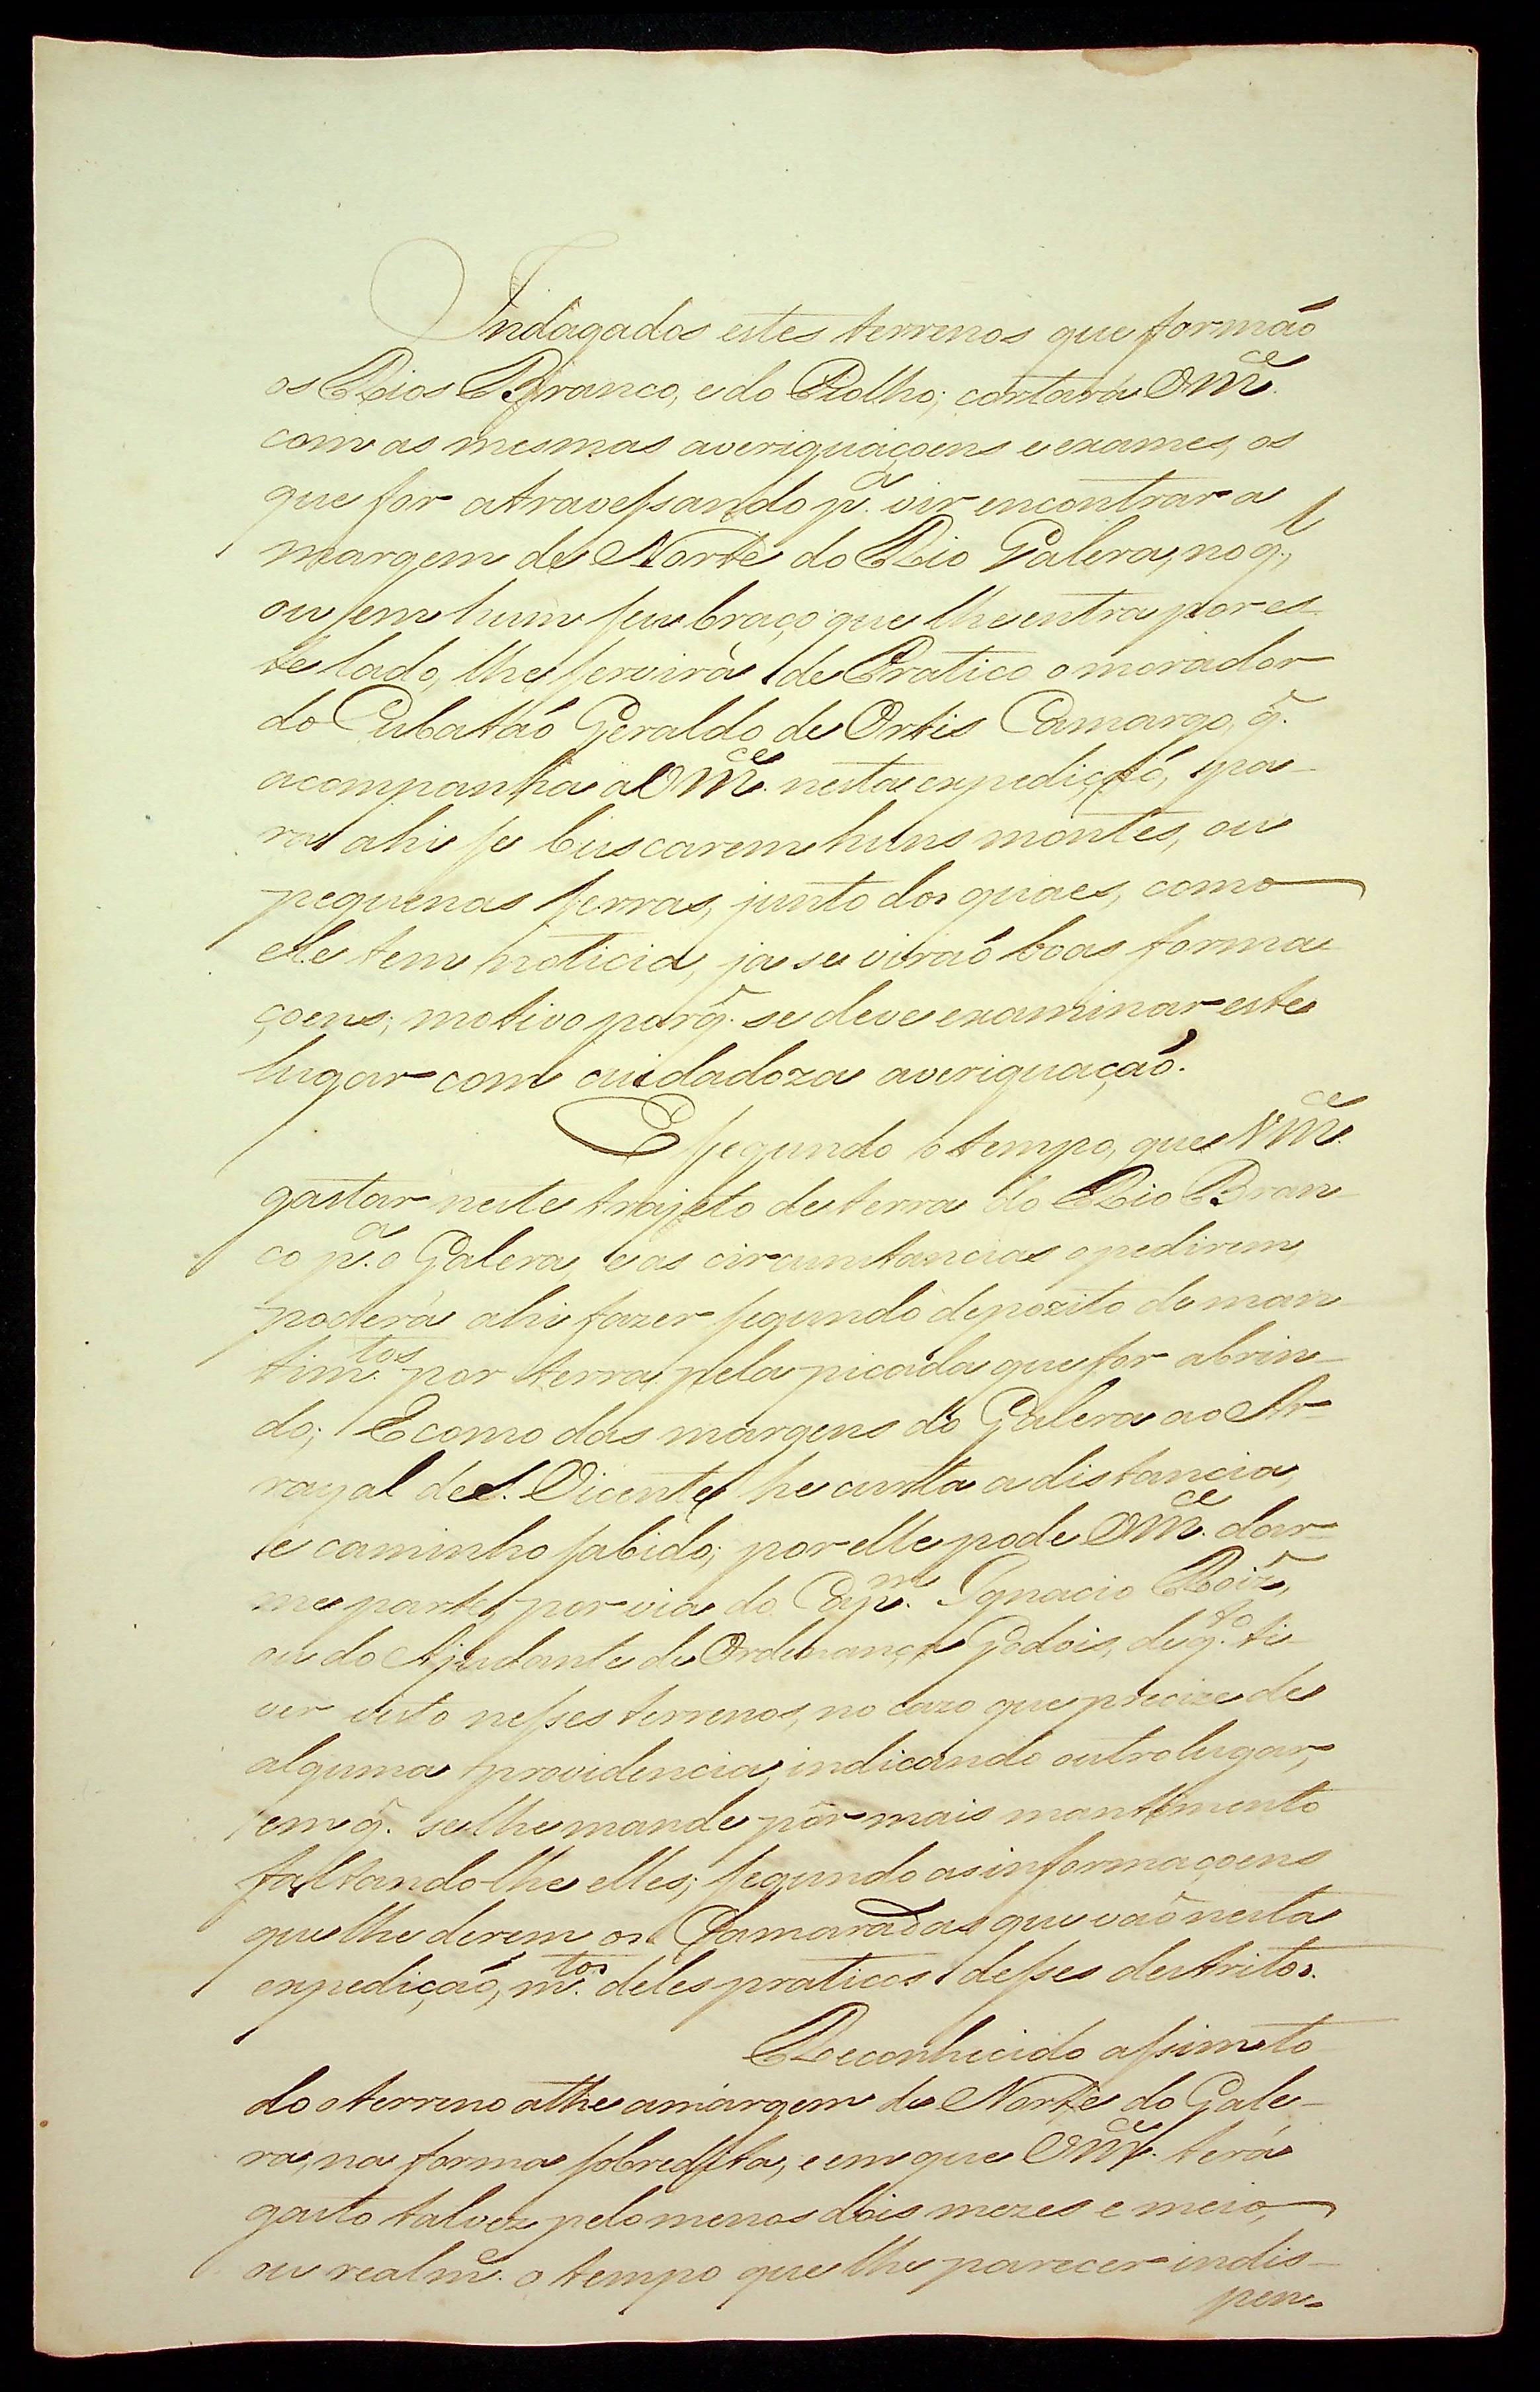 Indagados estes terrenos que formão
os Rios Branco, e do Piolho; cortará Vm.ce
com as mesmas averiguaçoens e exames, os
que for atravessando p.a vir encontrar a
margem de Norte do Rio Galera, no q̃.,
ou em hum seu braço que lhe entra por es
te lado, lhe servirà de Pratico o morador
do Cubatão Geraldo de Ortis Camargo, q̃.
acompanha a Vm.ce nesta expedição, pa-
ra ahi se buscarem huns montes, ou
pequenas serras, junto dos quaes, como
ele tem noticia, ja se virão boas forma
çoens; motivo porq̃. se deve examinar este
lugar com cuidadoza averiguação.
E segundo o tempo, que Vm.ce
gastar neste trajeto de terra do Rio Bran
co p.a o Galera, e as circunstancias o pedirem,
poderá ahi fazer segundo depozito de man
tim.tos por terra, pela picada que for abrin-
do; E como das margens do Galera ao Ar-
rayal de S. Vicente he curta a distancia,
e caminho sabido; por elle pode Vm.ce dar-
me parte, por via do Cap.m Ignacio Roiz̃,
ou do Ajudante de Ordenança Godois, de q.to ti-
ver visto nesses terrenos, no cazo que precize de
alguma providencia, indicando outro lugar,
em q̃. se lhe mande pôr mais mantimento
faltando-lhe elles; segundo as informaçoens
que lhe derem os Camaradas que vão nesta
expedição, m.tos deles praticos desses destritos.
Reconhecido assim to
do o terreno athe a margem de Norte do Gale-
ra, na forma sobredita, e em que Vm.ce terá
gasto talvez pelo menos dois mezes e meio,
ou realm.e o tempo que lhe parecer indis-
pen-